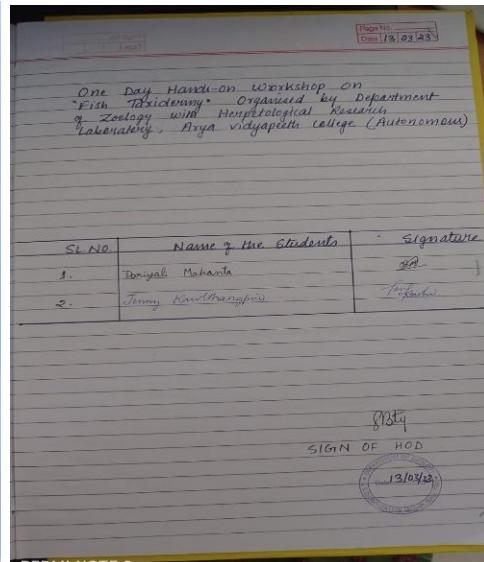 Page No.
Date 13 03 23
One Day Hands-on Workshop on
"Fish Taxidermy" Organised by Department
of Zoology with Herpetological Research
Laboratory, Arya Vidyapeeth College (Autonomous)
SL NO Name of the Students Signature
1. Mahanta
2. Jenny
SIGN OF HOD
Date 13/03/23
REDMI NOTE 8